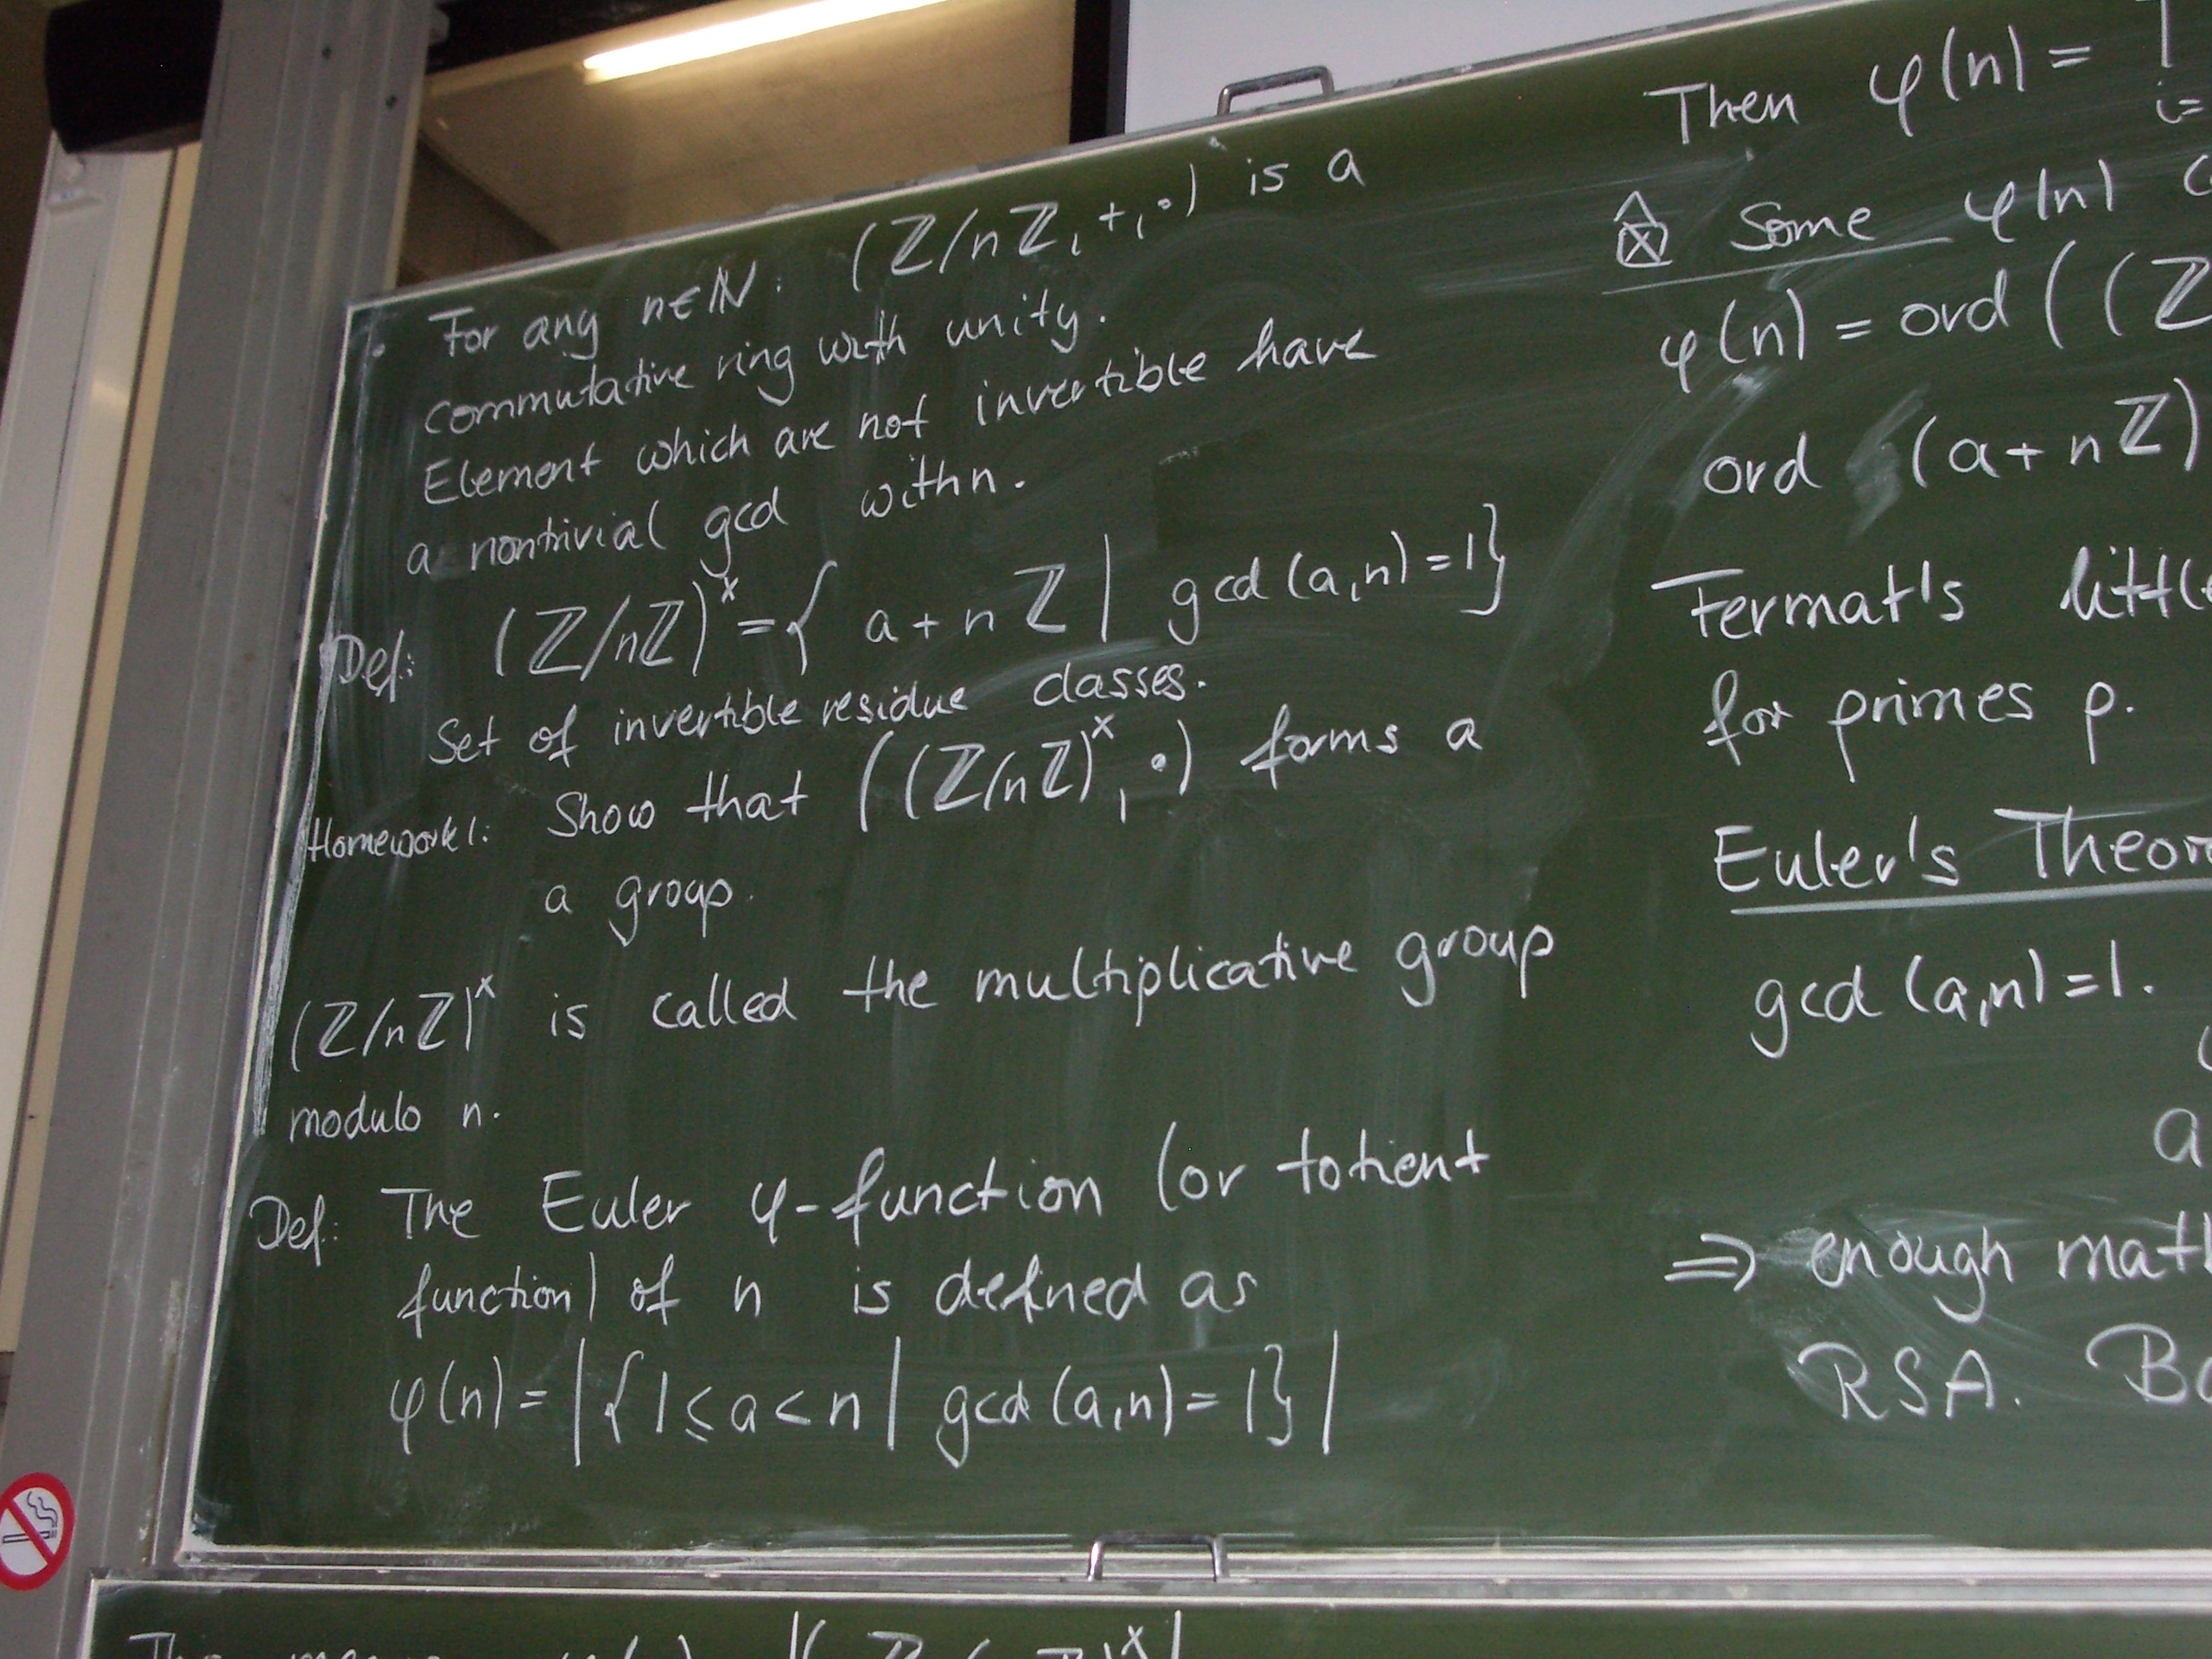 For any n∈ℕ: (ℤ/nℤ, +, ·) is a
commutative ring with unity.
Element which are not invertible have
a nontrivial gcd with n.
Def: (ℤ/nℤ)ˣ = { a + nℤ | gcd(a,n) = 1}
Set of invertible residue classes.
Homework 1: Show that ((ℤ/nℤ)ˣ, ·) forms a
a group.
(ℤ/nℤ)ˣ is called the multiplicative group
modulo n.
Def: The Euler φ-function (or totient
function) of n is defined as
φ(n) = |{1 ≤ a < n | gcd(a,n) = 1}|
Then φ(n) =
i=
Some φ(n)
φ(n) = ord ((ℤ
ord (a + nℤ)
Fermat's little
for primes p.
Euler's Theor
gcd(a,n)=1.
a
⇒ enough math
RSA.